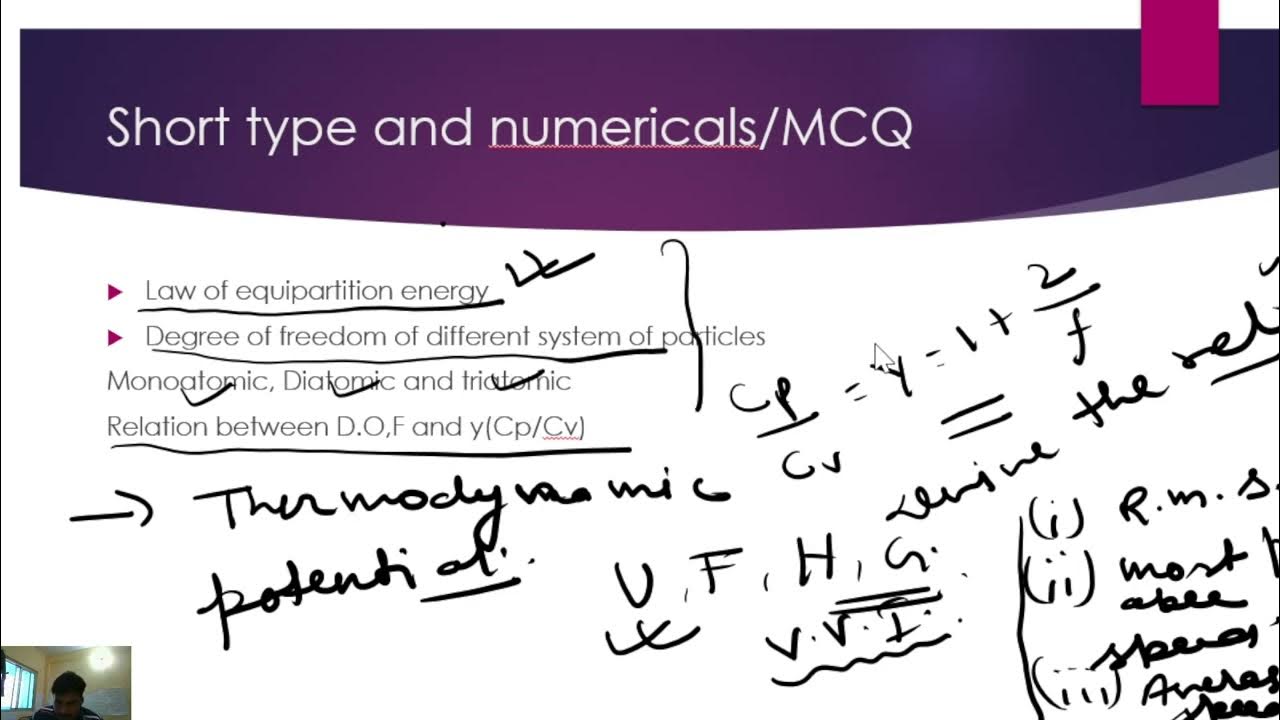 Short type and numericals/MCQ
Law of equipartition energy
Degree of freedom of different system of particles
Monoatomic, Diatomic and triatomic
Relation between D.O,F and y(Cp/Cv)
Cp/Cv = γ = 1 + 2/f
Derive the
→ Thermodynamic
potential.
U, F, H, G.
V.V.I.
(i) R.m.s.
(ii) most
able
speed
(iii)